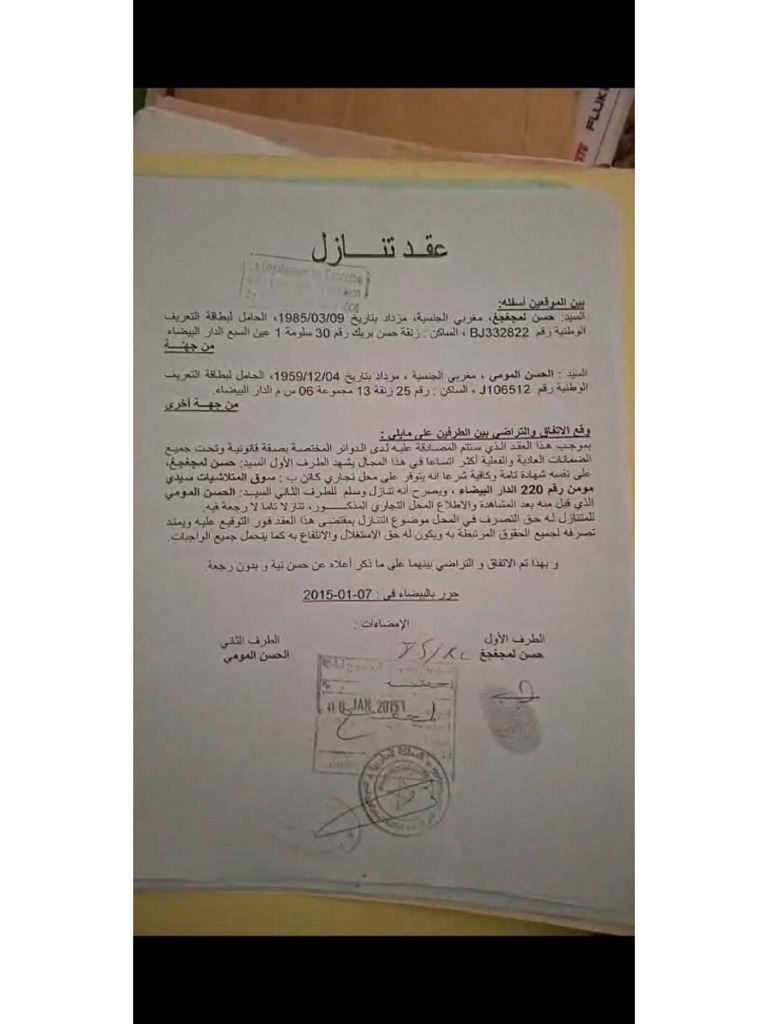 FLUKE
عقد تنازل
La Légalisation ne Concerne
بين الموقعين أسفله:
السيد: حسن لمجغجغ، مغربي الجنسية، مزداد بتاريخ 1985/03/09، الحامل لبطاقة التعريف
الوطنية رقم BJ332822 ، الساكن : زنقة حسن بريك رقم 30 سلومة 1 عين السبع الدار البيضاء
من جهة
السيد : الحسن المومي ، مغربي الجنسية ، مزداد بتاريخ 1959/12/04، الحامل لبطاقة التعريف
الوطنية رقم J106512 ، الساكن : رقم 25 زنقة 13 مجموعة 06 س م الدار البيضاء.
من جهة أخرى
وقع الاتفاق والتراضي بين الطرفين على مايلي :
بموجب هذا العقد الذي ستتم المصادقة عليه لدى الدوائر المختصة بصفة قانونية وتحت جميع
الضمانات العادية والفعلية أكثر اتساعا في هذا المجال يشهد الطرف الأول السيد: حسن لمجغجغ،
على نفسه شهادة تامة وكافية شرعا انه يتوفر على محل تجاري كائن ب : سوق المتلاشيات سيدي
مومن رقم 220 الدار البيضاء ، ويصرح أنه تنازل وسلم للطرف الثاني السيد: الحسن المومي
الذي قبل منه بعد المشاهدة والاطلاع المحل التجاري المذكور، تنازلا تاما لا رجعة فيه.
للمتنازل له حق التصرف في المحل موضوع التنازل بمقتضى هذا العقد فور التوقيع عليه ويمتد
تصرفه لجميع الحقوق المرتبطة به ويكون له حق الاستغلال والانتفاع به كما يتحمل جميع الواجبات.
و بهذا تم الاتفاق و التراضي بينهما على ما ذكر أعلاه عن حسن نية و بدون رجعة.
حرر بالبيضاء في : 07-01-2015
الإمضاءات :
الطرف الأول الطرف الثاني
حسن لمجغجغ الحسن المومي
JAN 2015